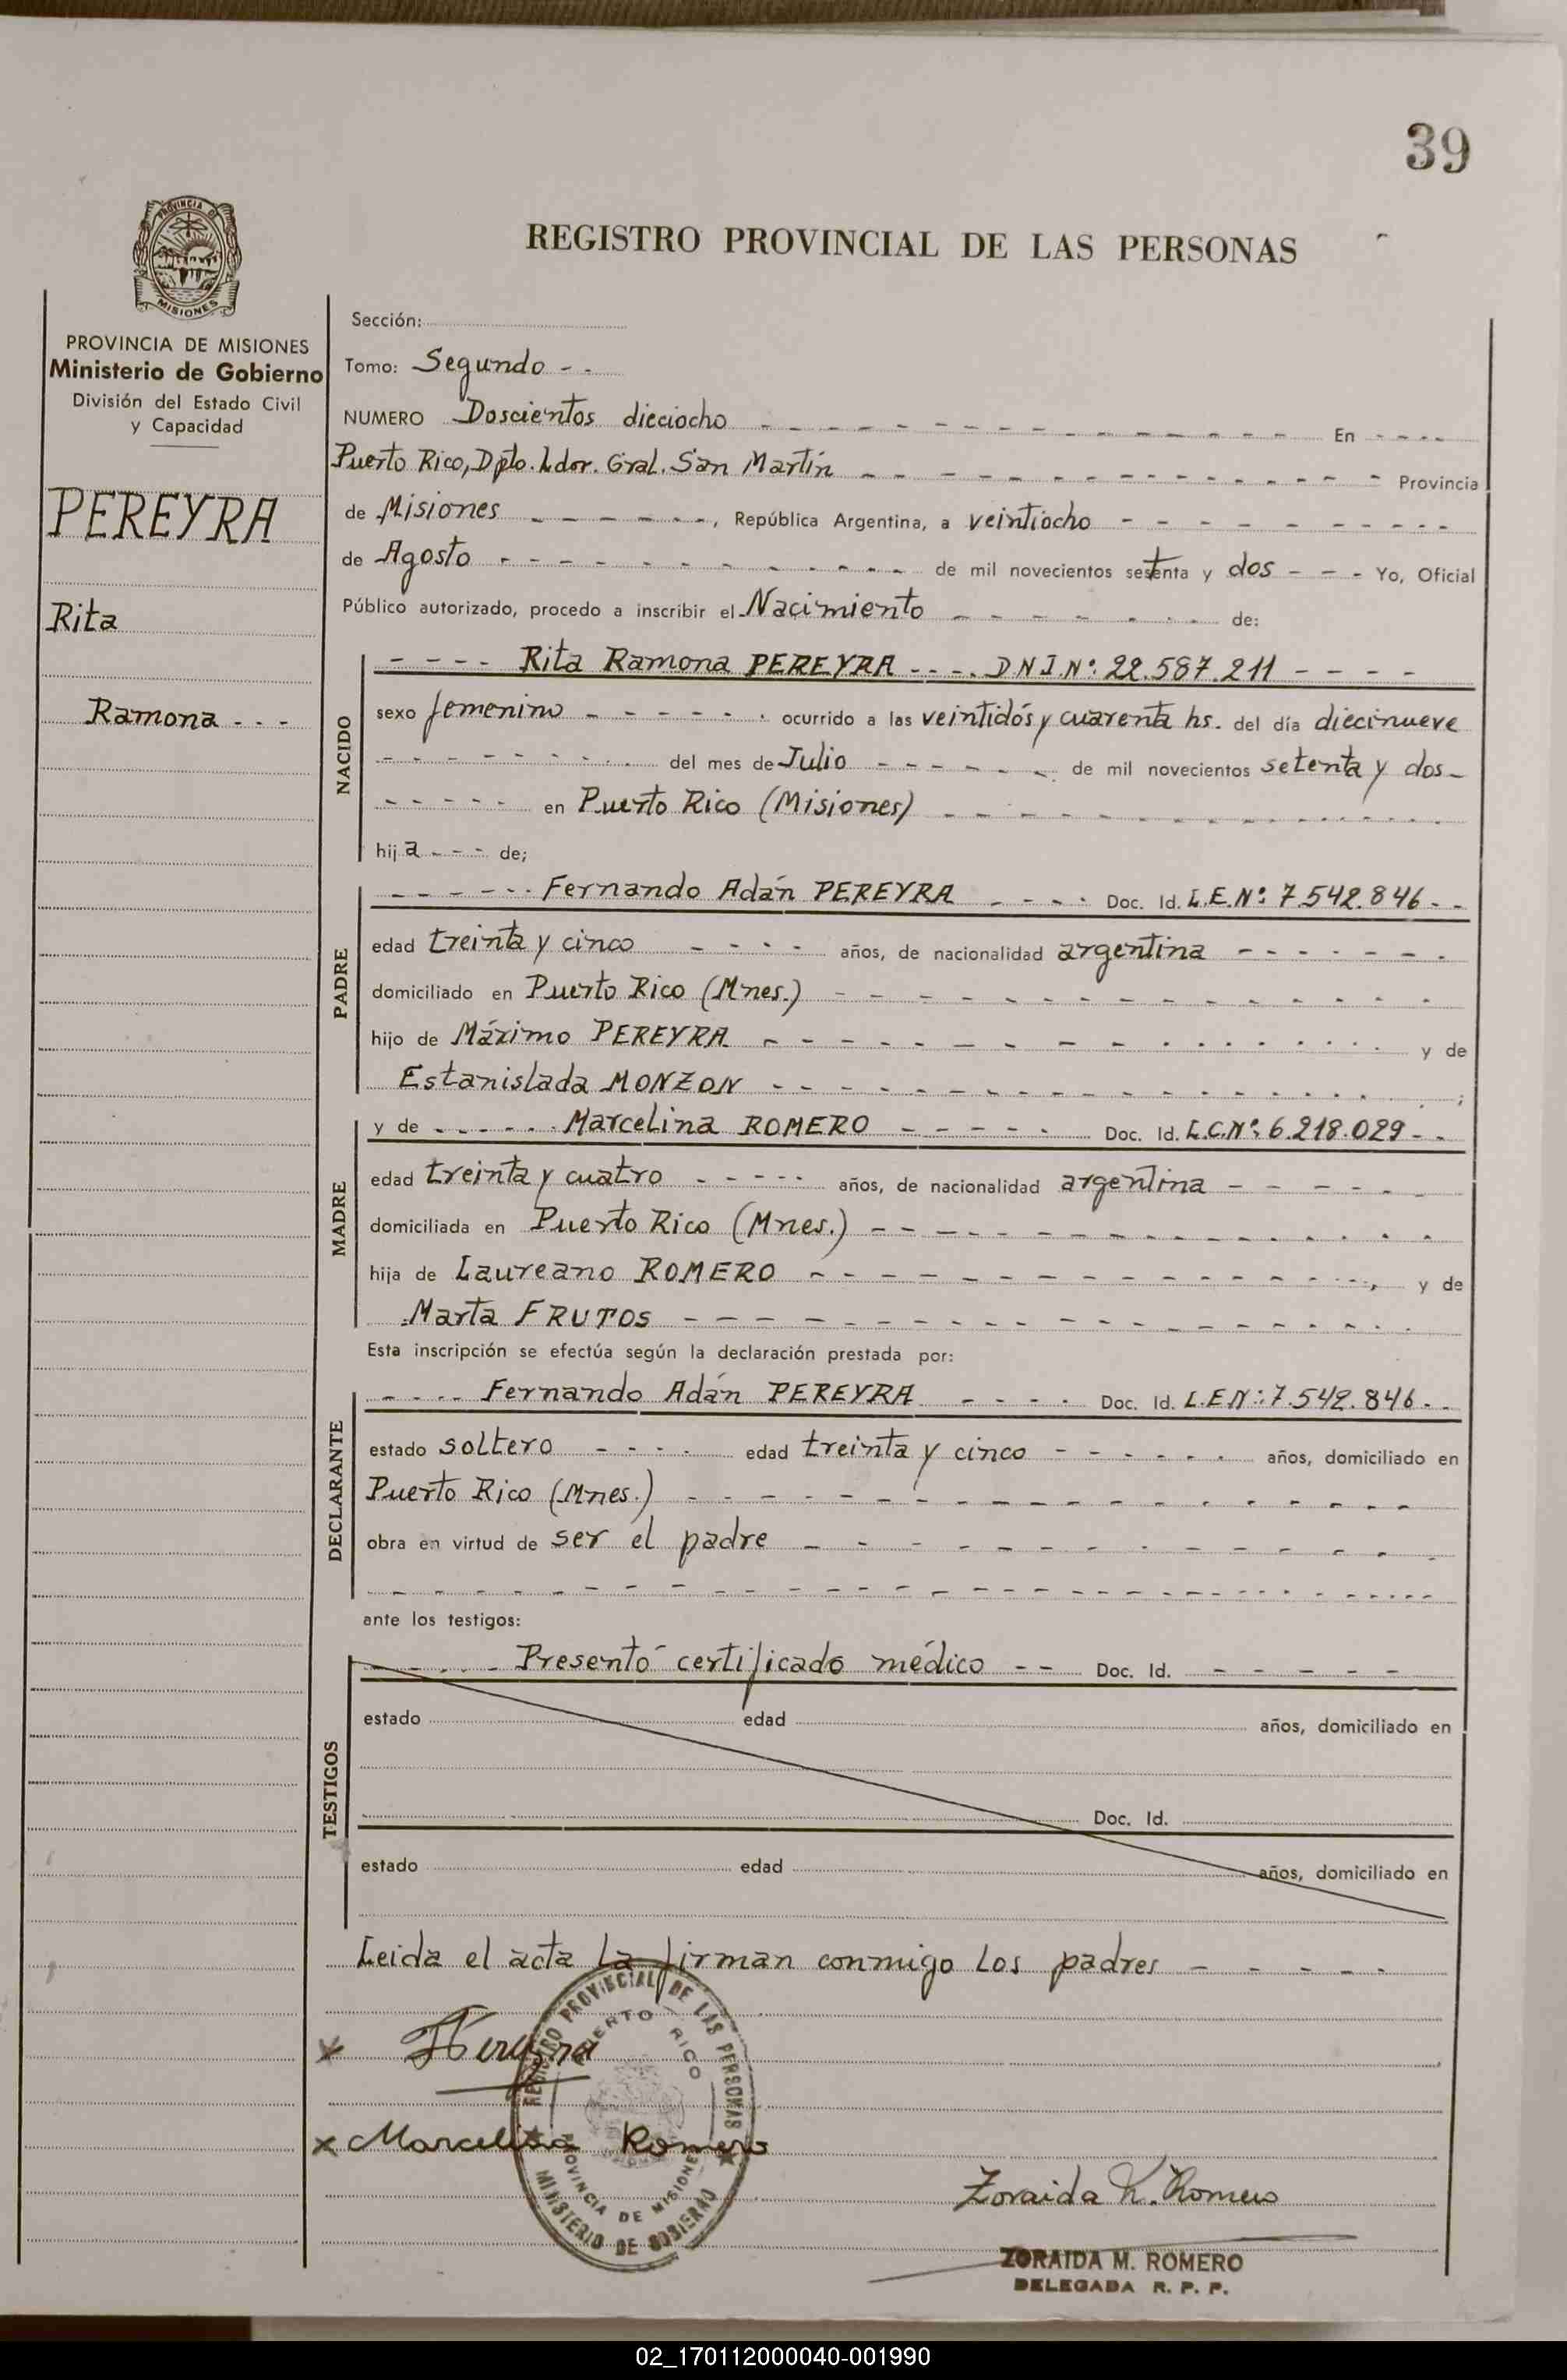 39
PROVINCIA DE
MISIONES
REGISTRO PROVINCIAL DE LAS PERSONAS
PROVINCIA DE MISIONES
Ministerio de Gobierno
División del Estado Civil
y Capacidad
PEREYRA
Rita
Ramona - - -
Sección:
Tomo: Segundo - -
NUMERO Doscientos dieciocho - - - En - - - -
Puerto Rico, Dpto. Ldor. Gral. San Martín - - - Provincia
de Misiones - - -, República Argentina, a veintiocho - - -
de Agosto - - - de mil novecientos setenta y dos - - - Yo, Oficial
Público autorizado, procedo a inscribir el Nacimiento - - - de:
NACIDO
- - - - Rita Ramona PEREYRA - - - . D.N.I.Nº: 22.587.211 - - - -
sexo femenino - - - ocurrido a las veintidós y cuarenta hs. del día diecinueve
- - - del mes de Julio - - - de mil novecientos setenta y dos -
- - - en Puerto Rico (Misiones) - - -
hija - - - de;
PADRE
- - - Fernando Adán PEREYRA - - - Doc. Id. L.E.Nº: 7.542.846 - -
edad treinta y cinco - - - años, de nacionalidad argentina - - -
domiciliado en Puerto Rico (Mnes.) - - -
hijo de Máximo PEREYRA - - - y de
Estanislada MONZON - - - ;
MADRE
y de - - - Marcelina ROMERO - - - Doc. Id. L.C.Nº: 6.218.029 - -
edad treinta y cuatro - - - años, de nacionalidad argentina - - -
domiciliada en Puerto Rico (Mnes.) - - -
hija de Laureano ROMERO - - -, y de
Marta FRUTOS - - -
Esta inscripción se efectúa según la declaración prestada por:
DECLARANTE
- - - Fernando Adán PEREYRA - - - Doc. Id. L.E.N:: 7.542.846 - -
estado soltero - - - edad treinta y cinco - - - años, domiciliado en
Puerto Rico (Mnes.) - - -
obra en virtud de ser el padre - - -
ante los testigos:
TESTIGOS
- - - Presentó certificado médico - - Doc. Id. - - - - -
estado edad años, domiciliado en
Doc. Id.
estado edad años, domiciliado en
Leida el acta la firman conmigo los padres - - -
x
x Marcelina Romero
REGISTRO PROVINCIAL DE LAS PERSONAS
PUERTO RICO
PROVINCIA DE MISIONES
MINISTERIO DE GOBIERNO
Zoraida M. Romero
ZORAIDA M. ROMERO
DELEGADA R. P. P.
02_170112000040-001990